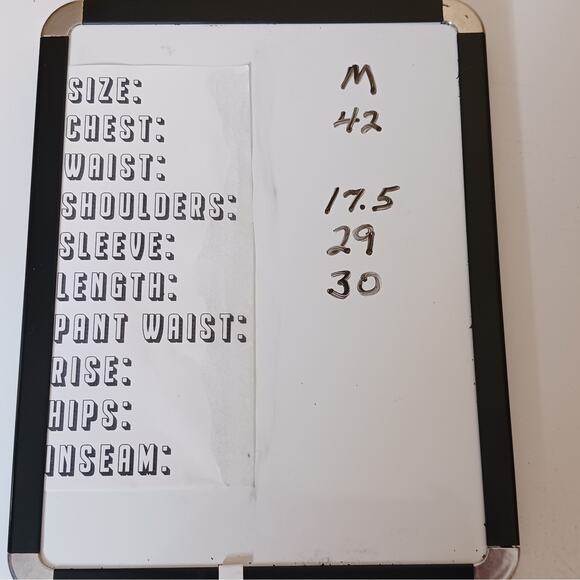 SIZE: M
CHEST: 42
WAIST:
SHOULDERS: 17.5
SLEEVE: 29
LENGTH: 30
PANT WAIST:
RISE:
HIPS:
INSEAM: